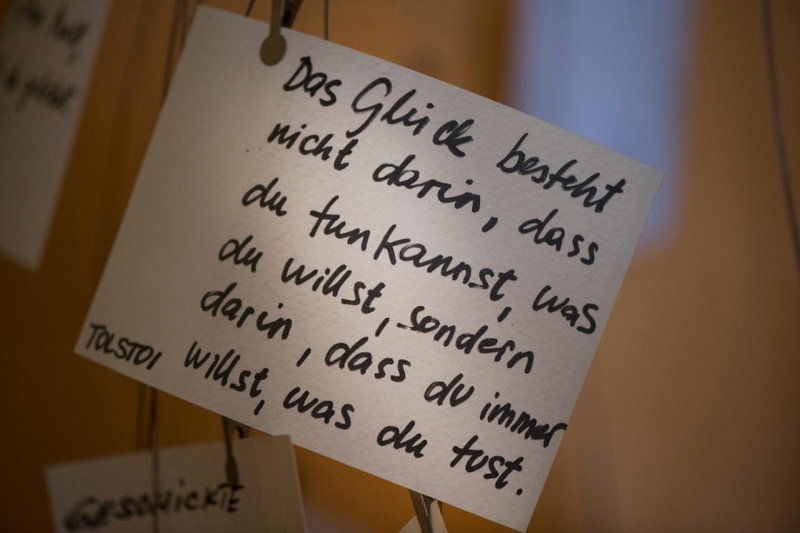 Das Glück besteht
nicht darin, dass
du tun kannst, was
du willst, sondern
darin, dass du immer
willst, was du tust.
TOLSTOI
GESCHICKTE